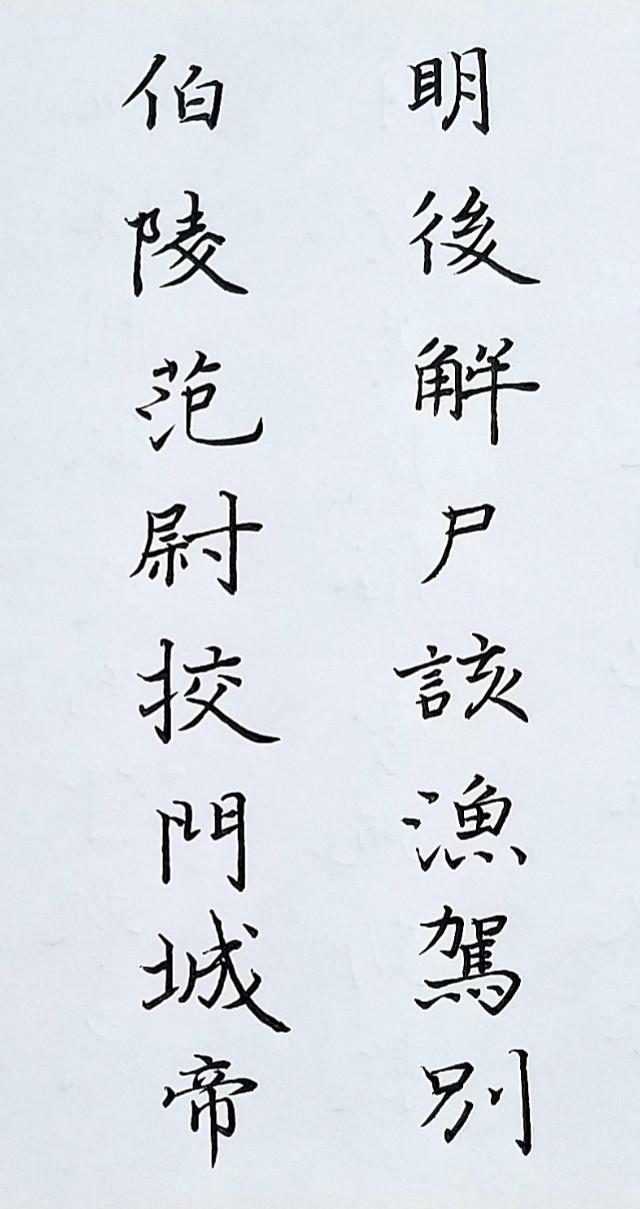 明後解尸該漁駕別
伯陵范尉挍門城帝